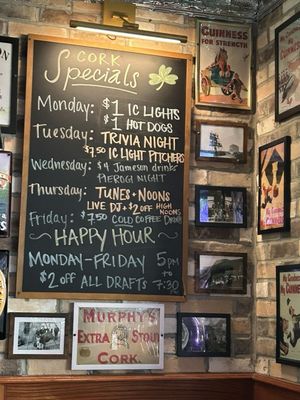 CORK
Specials
Monday: $1 IC LIGHTS
$1 HOT DOGS
Tuesday: TRIVIA NIGHT
$7.50 IC LIGHT PITCHERS
Wednesday: $4 Jameson drinks
PIEROGI NIGHT
Thursday: TUNES + NOONS
LIVE DJ & $2 OFF HIGH NOONS
Friday: $7.50 COLD COFFEE DRINK
HAPPY HOUR
MONDAY-FRIDAY 5pm
to
$2 off ALL DRAFTS 7:30
GUINNESS
FOR STRENGTH
MURPHY'S
EXTRA STOUT
CORK